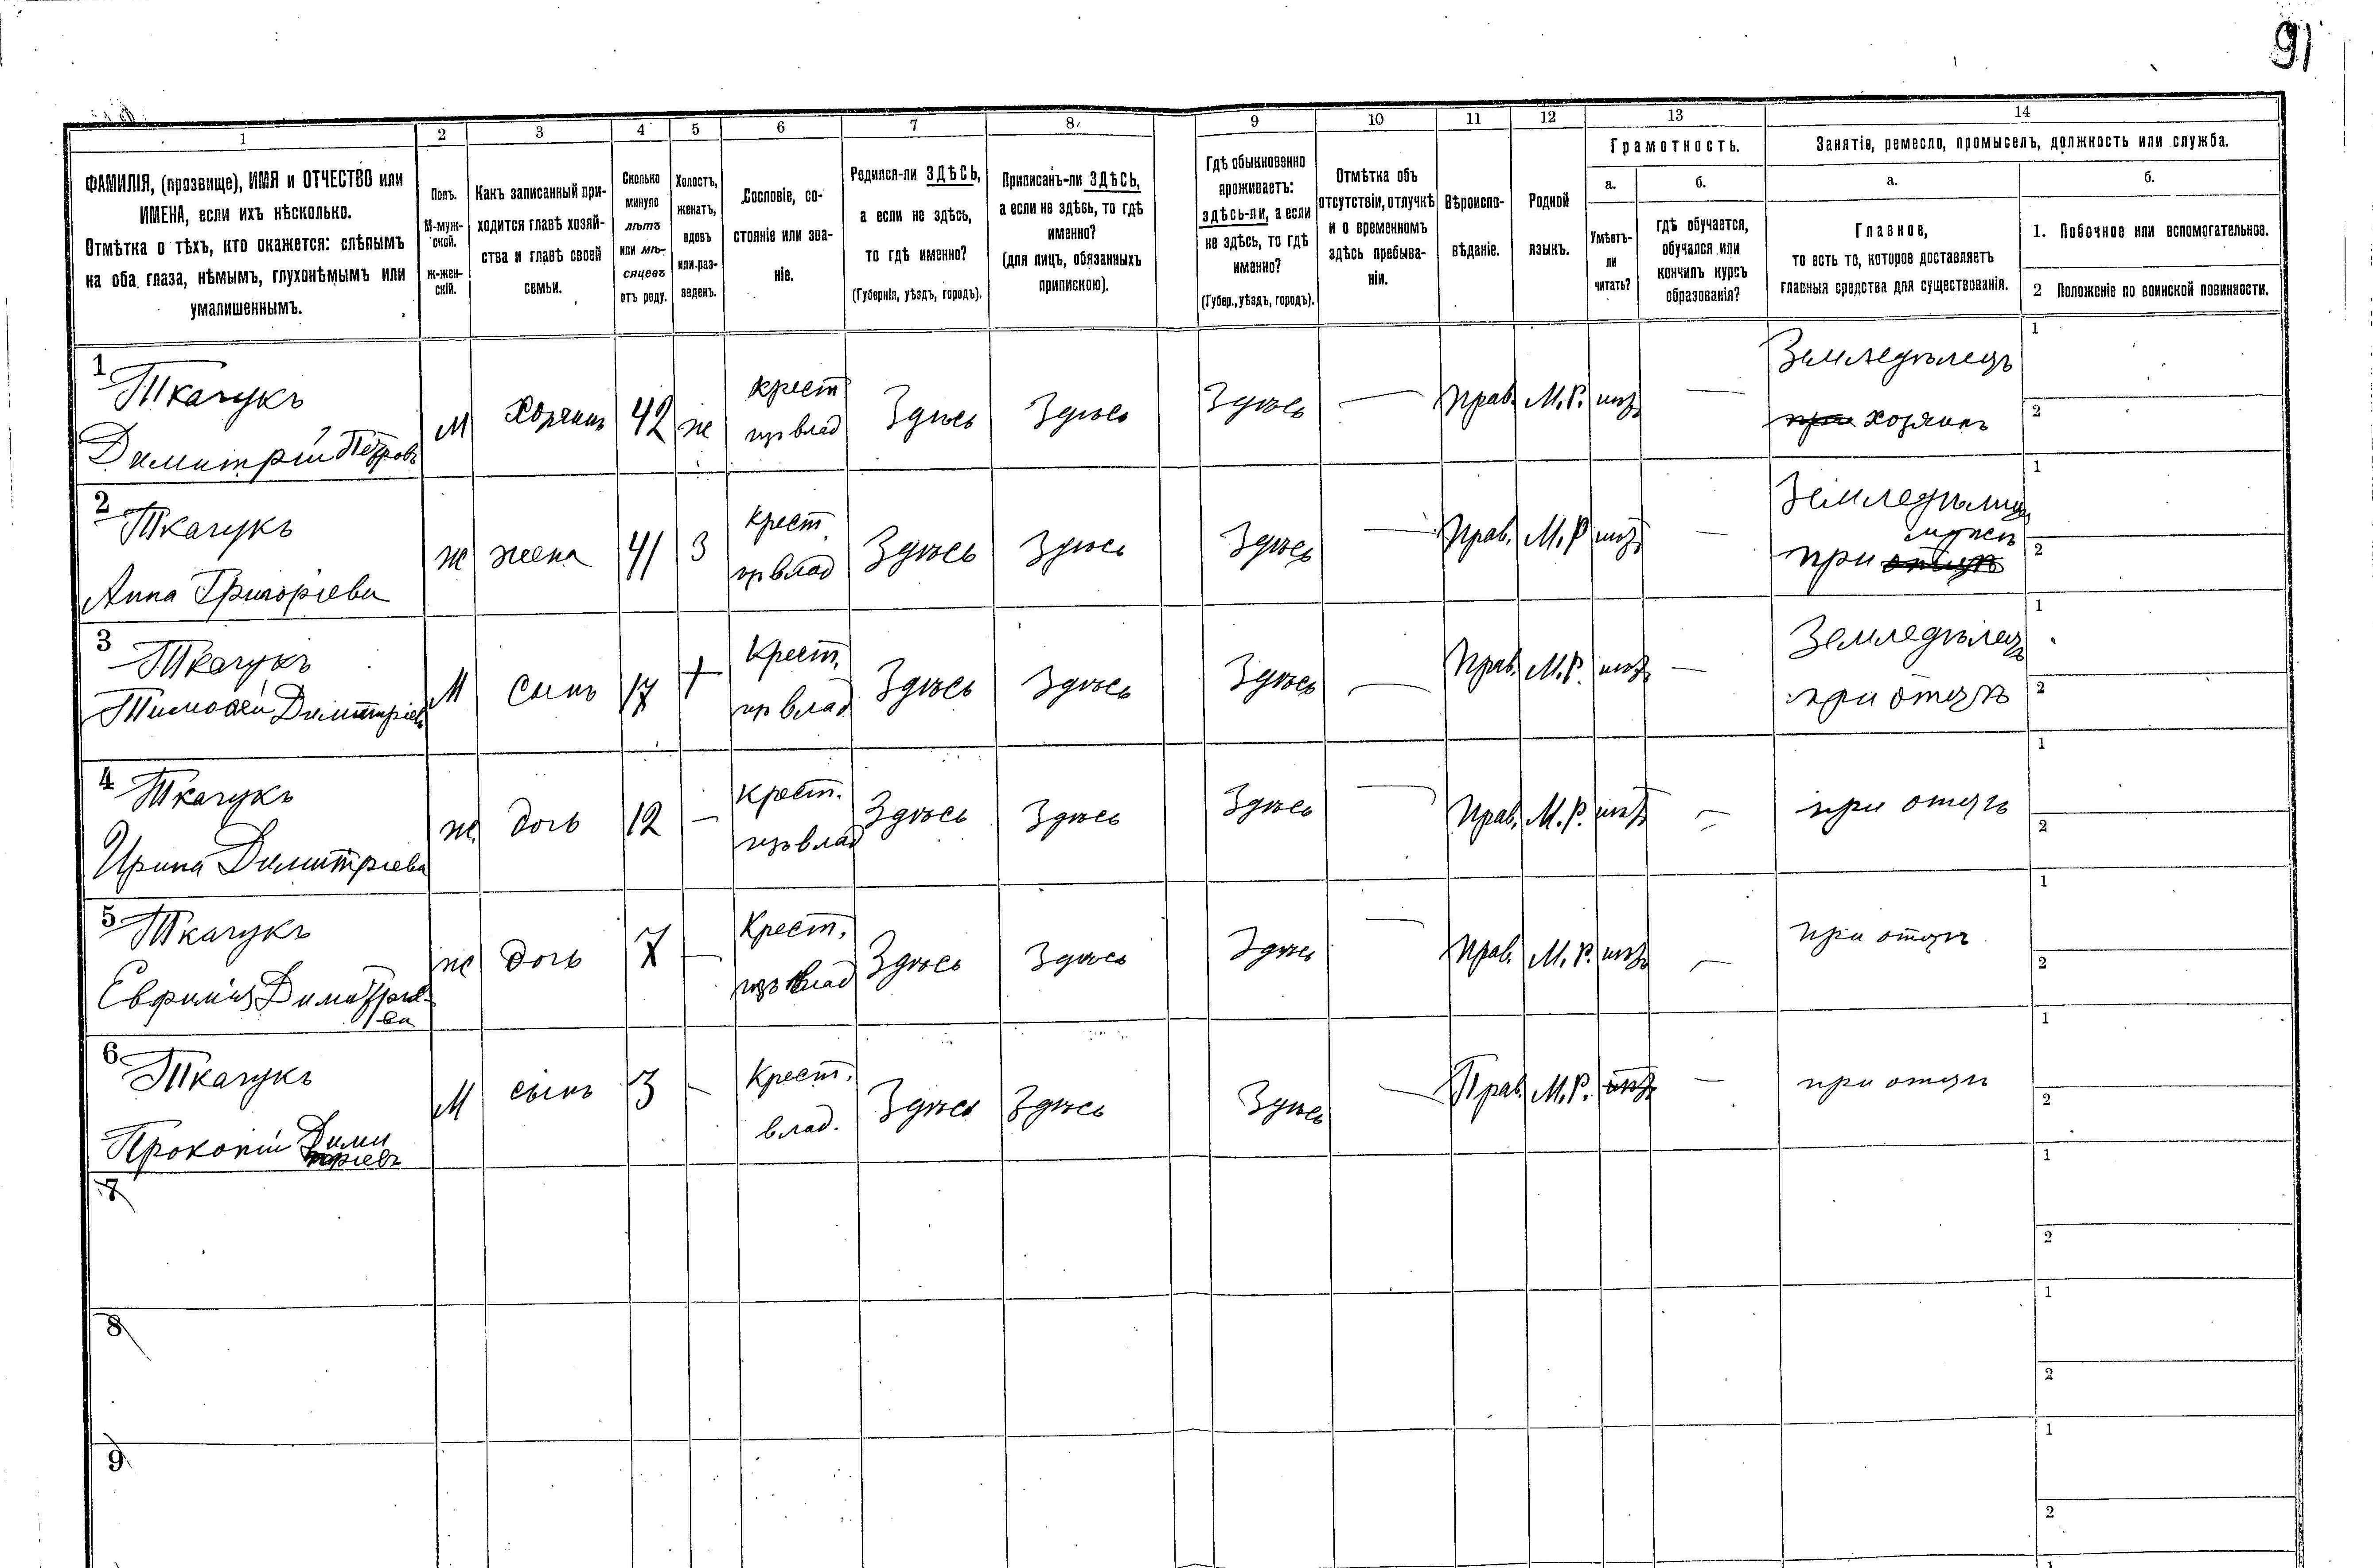 91
1 2 3 4 5 6 7 8 9 10 11 12 13 14
ФАМИЛІЯ, (прозвище), ИМЯ и ОТЧЕСТВО или
ИМЕНА, если ихъ нѣсколько.
Отмѣтка о тѣхъ, кто окажется: слѣпымъ
на оба глаза, нѣмымъ, глухонѣмымъ или
умалишеннымъ.
Полъ.
М-муж-
ской.
ж-жен-
скій.
Какъ записанный при-
ходится главѣ хозяй-
ства и главѣ своей
семьи.
Сколько
минуло
лѣтъ
или мѣ-
сяцевъ
отъ роду.
Холостъ,
женатъ,
вдовъ
или раз-
веденъ.
Сословіе, со-
стояніе или зва-
ніе.
Родился-ли ЗДѢСЬ,
а если не здѣсь,
то гдѣ именно?
(Губернія, уѣздъ, городъ).
Приписанъ-ли ЗДѢСЬ,
а если не здѣсь, то гдѣ
именно?
(для лицъ, обязанныхъ
припискою).
Гдѣ обыкновенно
проживаетъ:
здѣсь-ли, а если
не здѣсь, то гдѣ
именно?
(Губер., уѣздъ, городъ).
Отмѣтка объ
отсутствіи, отлучкѣ
и о временномъ
здѣсь пребыва-
ніи.
Вѣроиспо-
вѣданіе.
Родной
языкъ.
Грамотность.
а.
Умѣетъ-
ли
читать?
б.
гдѣ обучается,
обучался или
кончилъ курсъ
образованія?
Занятіе, ремесло, промыселъ, должность или служба.
а.
Главное,
то есть то, которое доставляетъ
главныя средства для существованія.
б.
1. Побочное или вспомогательное.
2 Положеніе по воинской повинности.
1
Ткачукъ
Димитрій Петровъ
М
Хозяинъ
42
ж
крест
изъ влад
Здѣсь
Здѣсь
Здѣсь
—
Прав.
М.Р.
нѣтъ
—
Земледѣлецъ
при хозяинъ
1
2
2
Ткачукъ
Анна Григоріева
ж
жена
41
З
крест
изъ влад
Здѣсь
Здѣсь
Здѣсь
—
Прав.
М.Р
нѣтъ
—
Земледѣлица
мужѣ
при отцѣ
1
2
3
Ткачукъ
Тимоѳей Димитріевъ
М
сынъ
17
+
Крест.
изъ влад
Здѣсь
Здѣсь
Здѣсь
—
Прав.
М.Р.
нѣтъ
—
Земледѣлецъ
при отцѣ
1
2
4
Ткачукъ
Ирина Димитріева
ж.
дочь
12
—
крест.
изъ влад
Здѣсь
Здѣсь
Здѣсь
—
Прав.
М.Р.
нѣтъ
—
при отцѣ
1
2
5
Ткачукъ
Евфимія Димитріе-
ва
ж
дочь
7
—
Крест.
изъ влад
Здѣсь
Здѣсь
Здѣсь
—
Прав.
М.Р.
нѣтъ
—
при отцѣ
1
2
6
Ткачукъ
Прокопій Дими
тріевъ
М
сынъ
3
—
Крест.
влад.
Здѣсь
Здѣсь
Здѣсь
—
Прав.
М.Р.
нѣтъ
—
при отцѣ
1
2
7
1
2
8
1
2
9
1
2
1